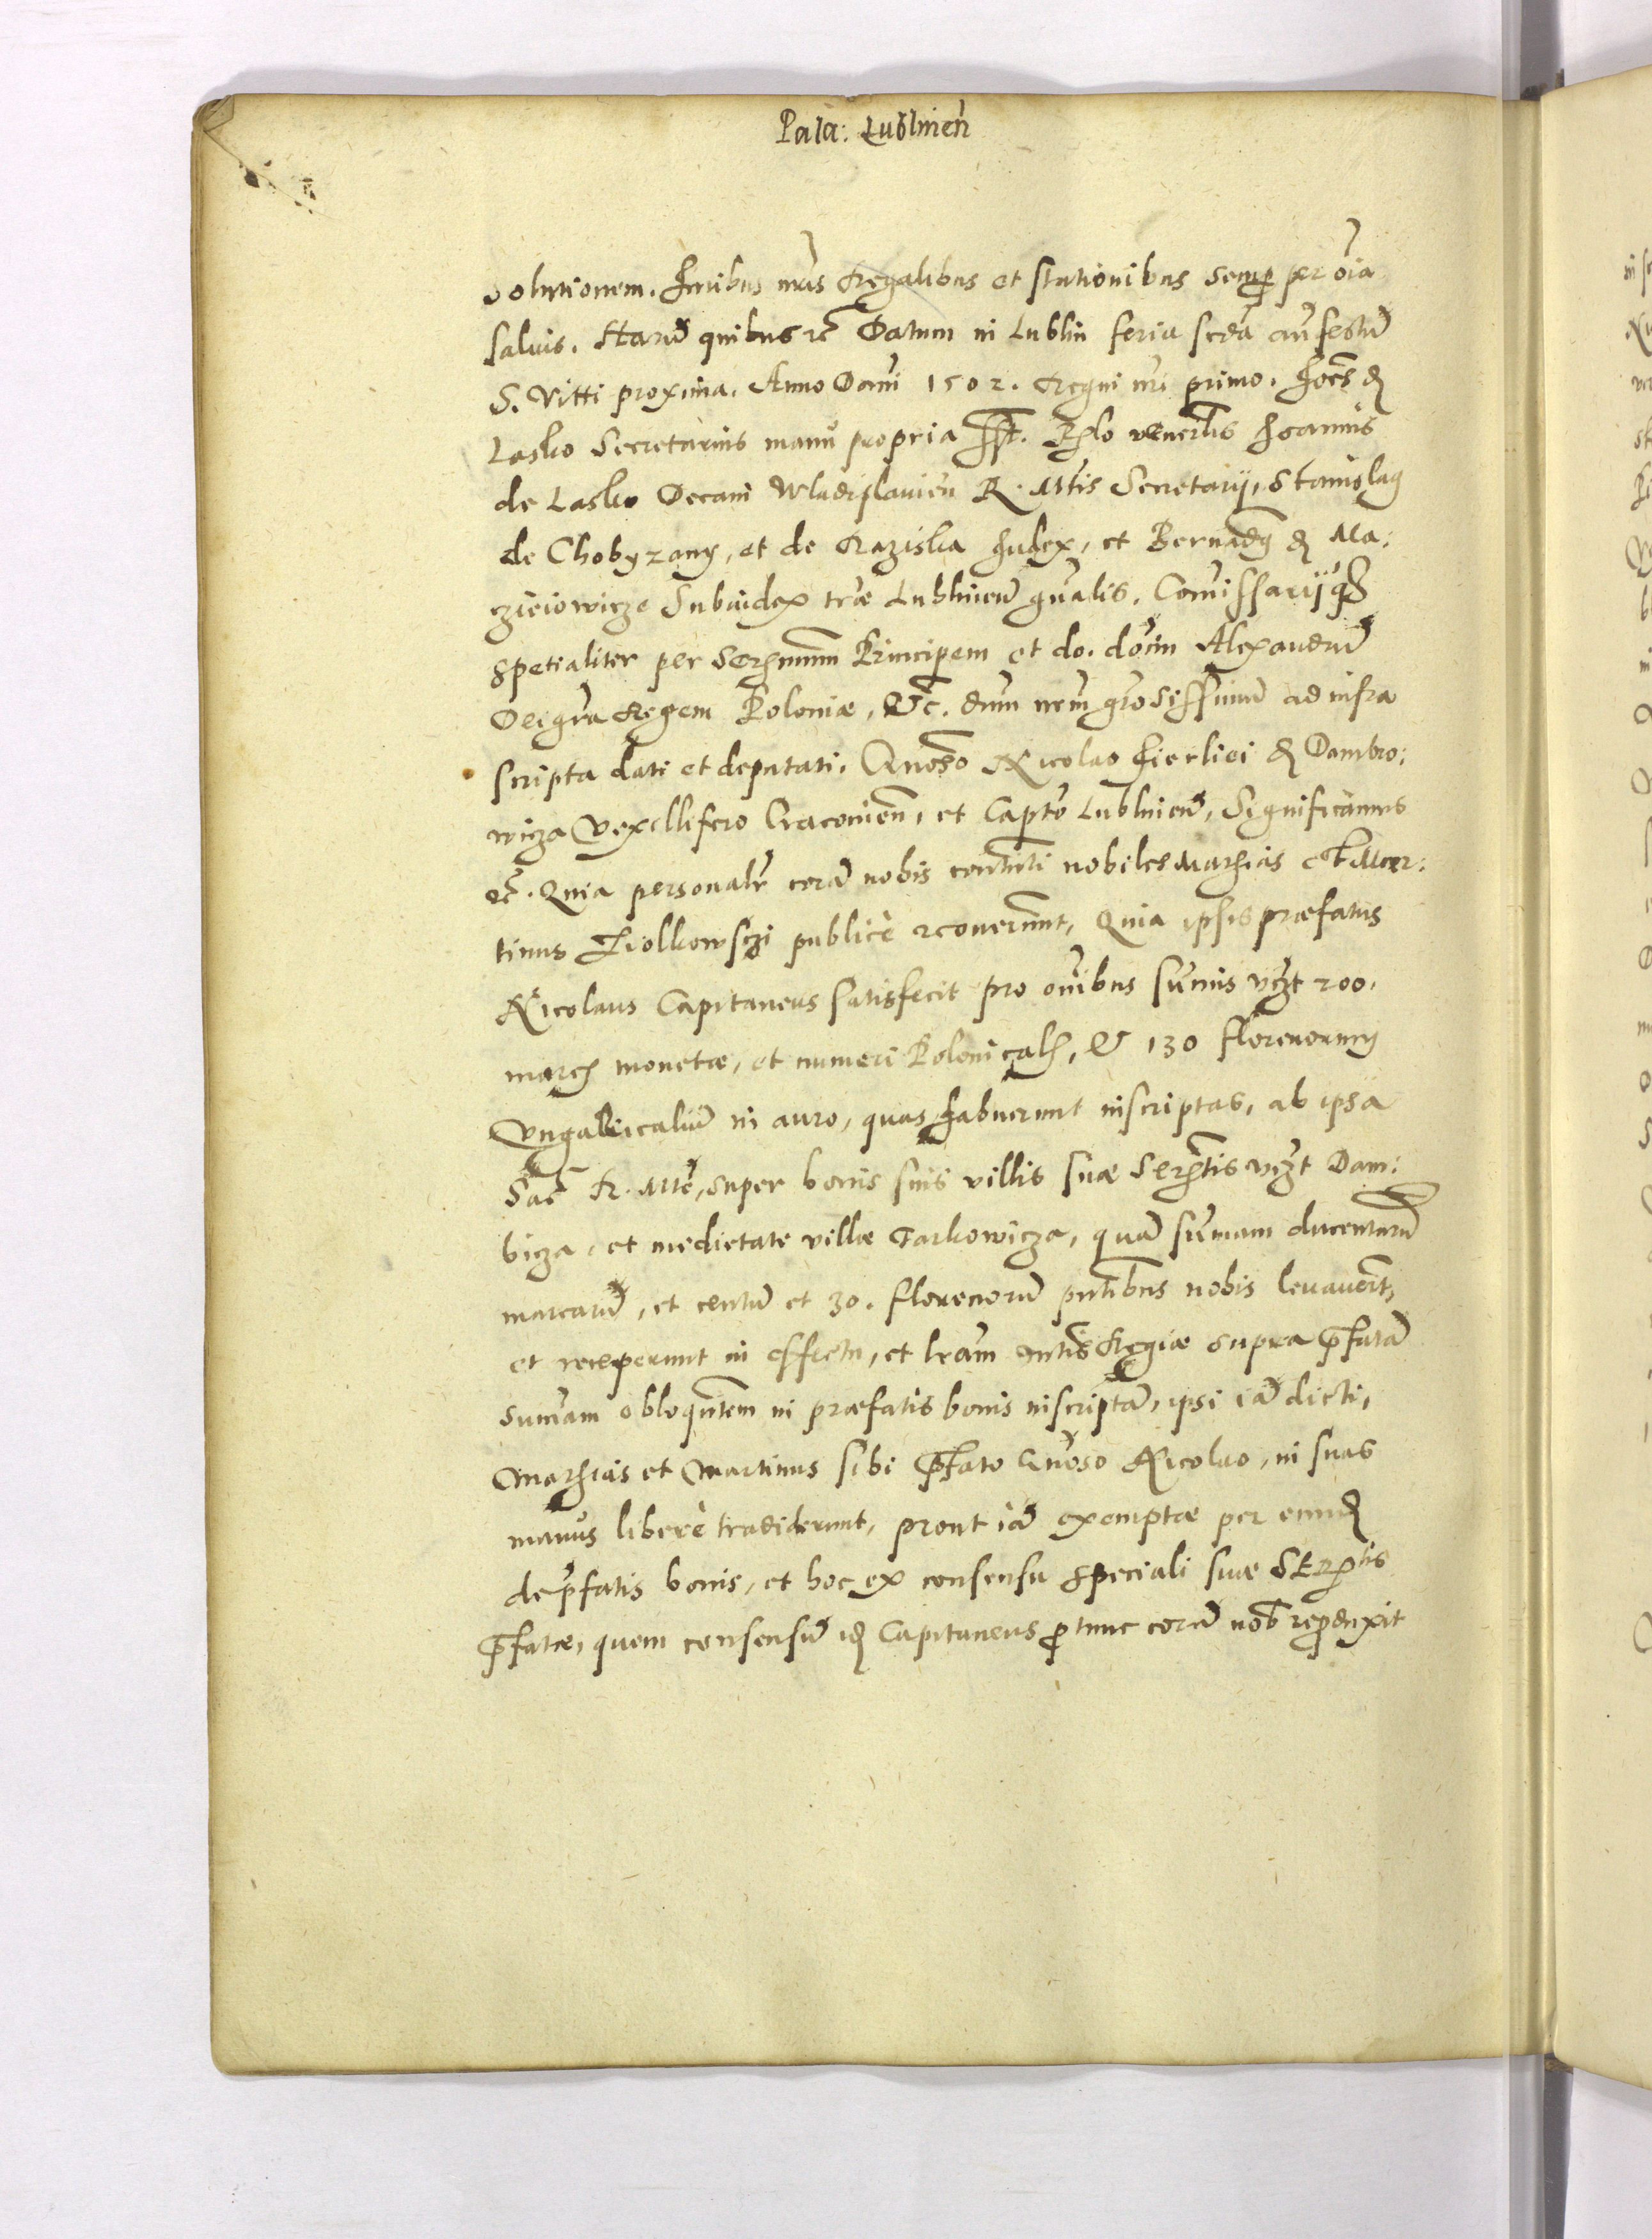 Pala: Lublinen̄
Solutionem. Juribus nr̄is Regalibus et stationibus semp̱ per oīa
saluis. Harū quibus ꝛc̄ Datum in Lublin feria scd̄a an̄ festū
S. Vitti proxima. Anno Dom̄i 1502. Regni nr̄i primo. Joēs de
Lasko Secretarius manu propria sst. venerlis Joannis
de Lasko Decani Wladislauien̄ R. Mt̄is Secretarij, Stanislaꝰ
de Chobyzany, et de Raziska Judex, et Bernadꝰ de Ma:
czieiowicze Subiudex trae Lublinen̄ gn̄alis. Com̄issarij
spetialiter per Sermum Principem et do. dom̄ Alexandrū
Dei gr̄a Regem Poloniæ, &c. dnm nr̄m gr̄osissimū ad infra
scripta dati et deputati. Gn̄oso Nicolao Fierliei de Dambro:
wicza Vexillifero Cracouien̄, et Capt̄o Lublinen̄, Significamus
ꝛc̄. Quia personalr̄ corā nobis constituti nobiles Mathias et Mar:
tinus Ziolkowsczi publicè recouerunt, Quia ipsis præfatus
Nicolaus Capitaneus satisfecit pro om̄ibus sum̄is vczt 200.
march monetæ, et numeri Polonicalh, & 130 florenorum
Vngaricaliū in auro, quas habuerunt inscriptas, ab ipsa
Sac̄ R. Mt̄e, super bonis suis villis suæ Serentis vczt Dam:
bicza, et medietate villæ Tarkowicza, quā sum̄am ducentarū
marcarū, et centū et 30. florenorū pntibus nobis leuauer̄t,
et receperunt in effectu, et lr̄am Mtis Regiæ supra p̄fatā
sum̄am obloquntem in præfatis bonis inscriptā, ipsi iā dicti,
Mathias et Martinus sibi p̄fato Gn̄oso Nicolao, in suas
manus liberè tradiderunt, prout iā exemptæ per eund
de p̄fatis bonis, et hoc ex consensu speciali suæ Serentis
p̄fatæ, quem consensū id Capitaneus ꝓ tunc corā nob̄ reproduxit